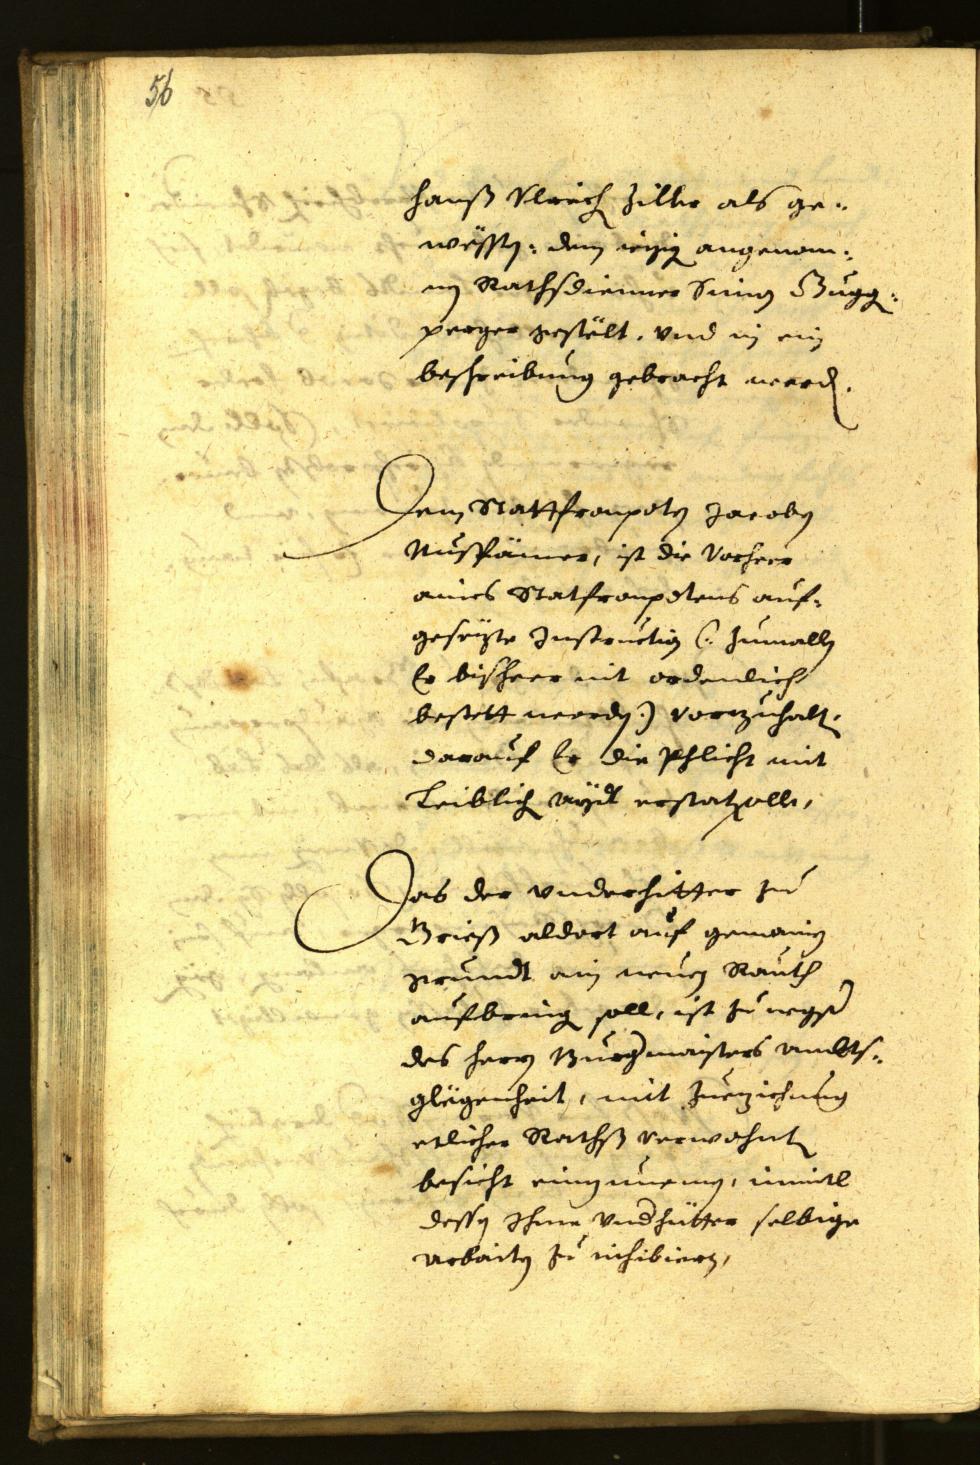 56
hanß Ulrich Ziller als ge-
wesster: dem iezig angenom-
nen Rathsdienner Simon Gugg-
perger gestölt, vnd in ein
beschreibung gebracht werden.
Dem Stattfronpoten Jacoben
Nusshamer, ist die Vorheer
aines Statfronpotens auf-
gesezte Instruction (: zumallen
Er bißheer nit ordenlich
bestelt worden :) vorzuhalten,
darauf Er die Phlicht mit
Leiblich Aydt erstat solle,
Das der vnderhitter zu
Grieß aldort auf gemainen
grundt ain neuen Rauth
aufbring soll, ist zu negst
des herrn Burgermaisters Ambts-
glegenheit, mit Zueziehung
etlicher Rathß verwohnten
besicht einzunemen, inmitl
dessen Ihme vnderhütter selbige
arbaiten zu inhibiern,